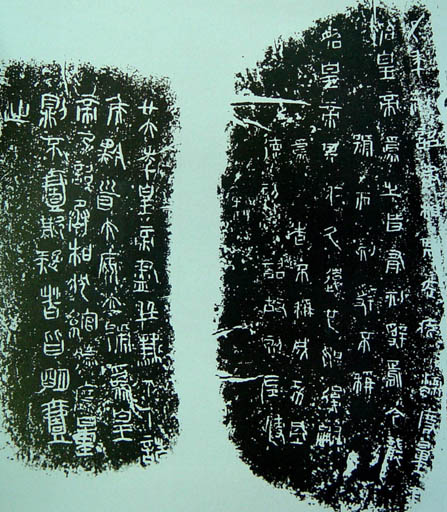 年制詔丞相斯去疾法度量
始皇帝為之皆有刻辭焉今襲
號而刻辭不稱
始皇帝其於久遠也如後嗣
為之者不稱成功盛
德刻此詔故刻左使
廿六年皇帝盡并兼天下諸
侯黔首大安立號為皇
帝乃詔丞相狀綰法度量
則不壹歉疑者皆明壹
之